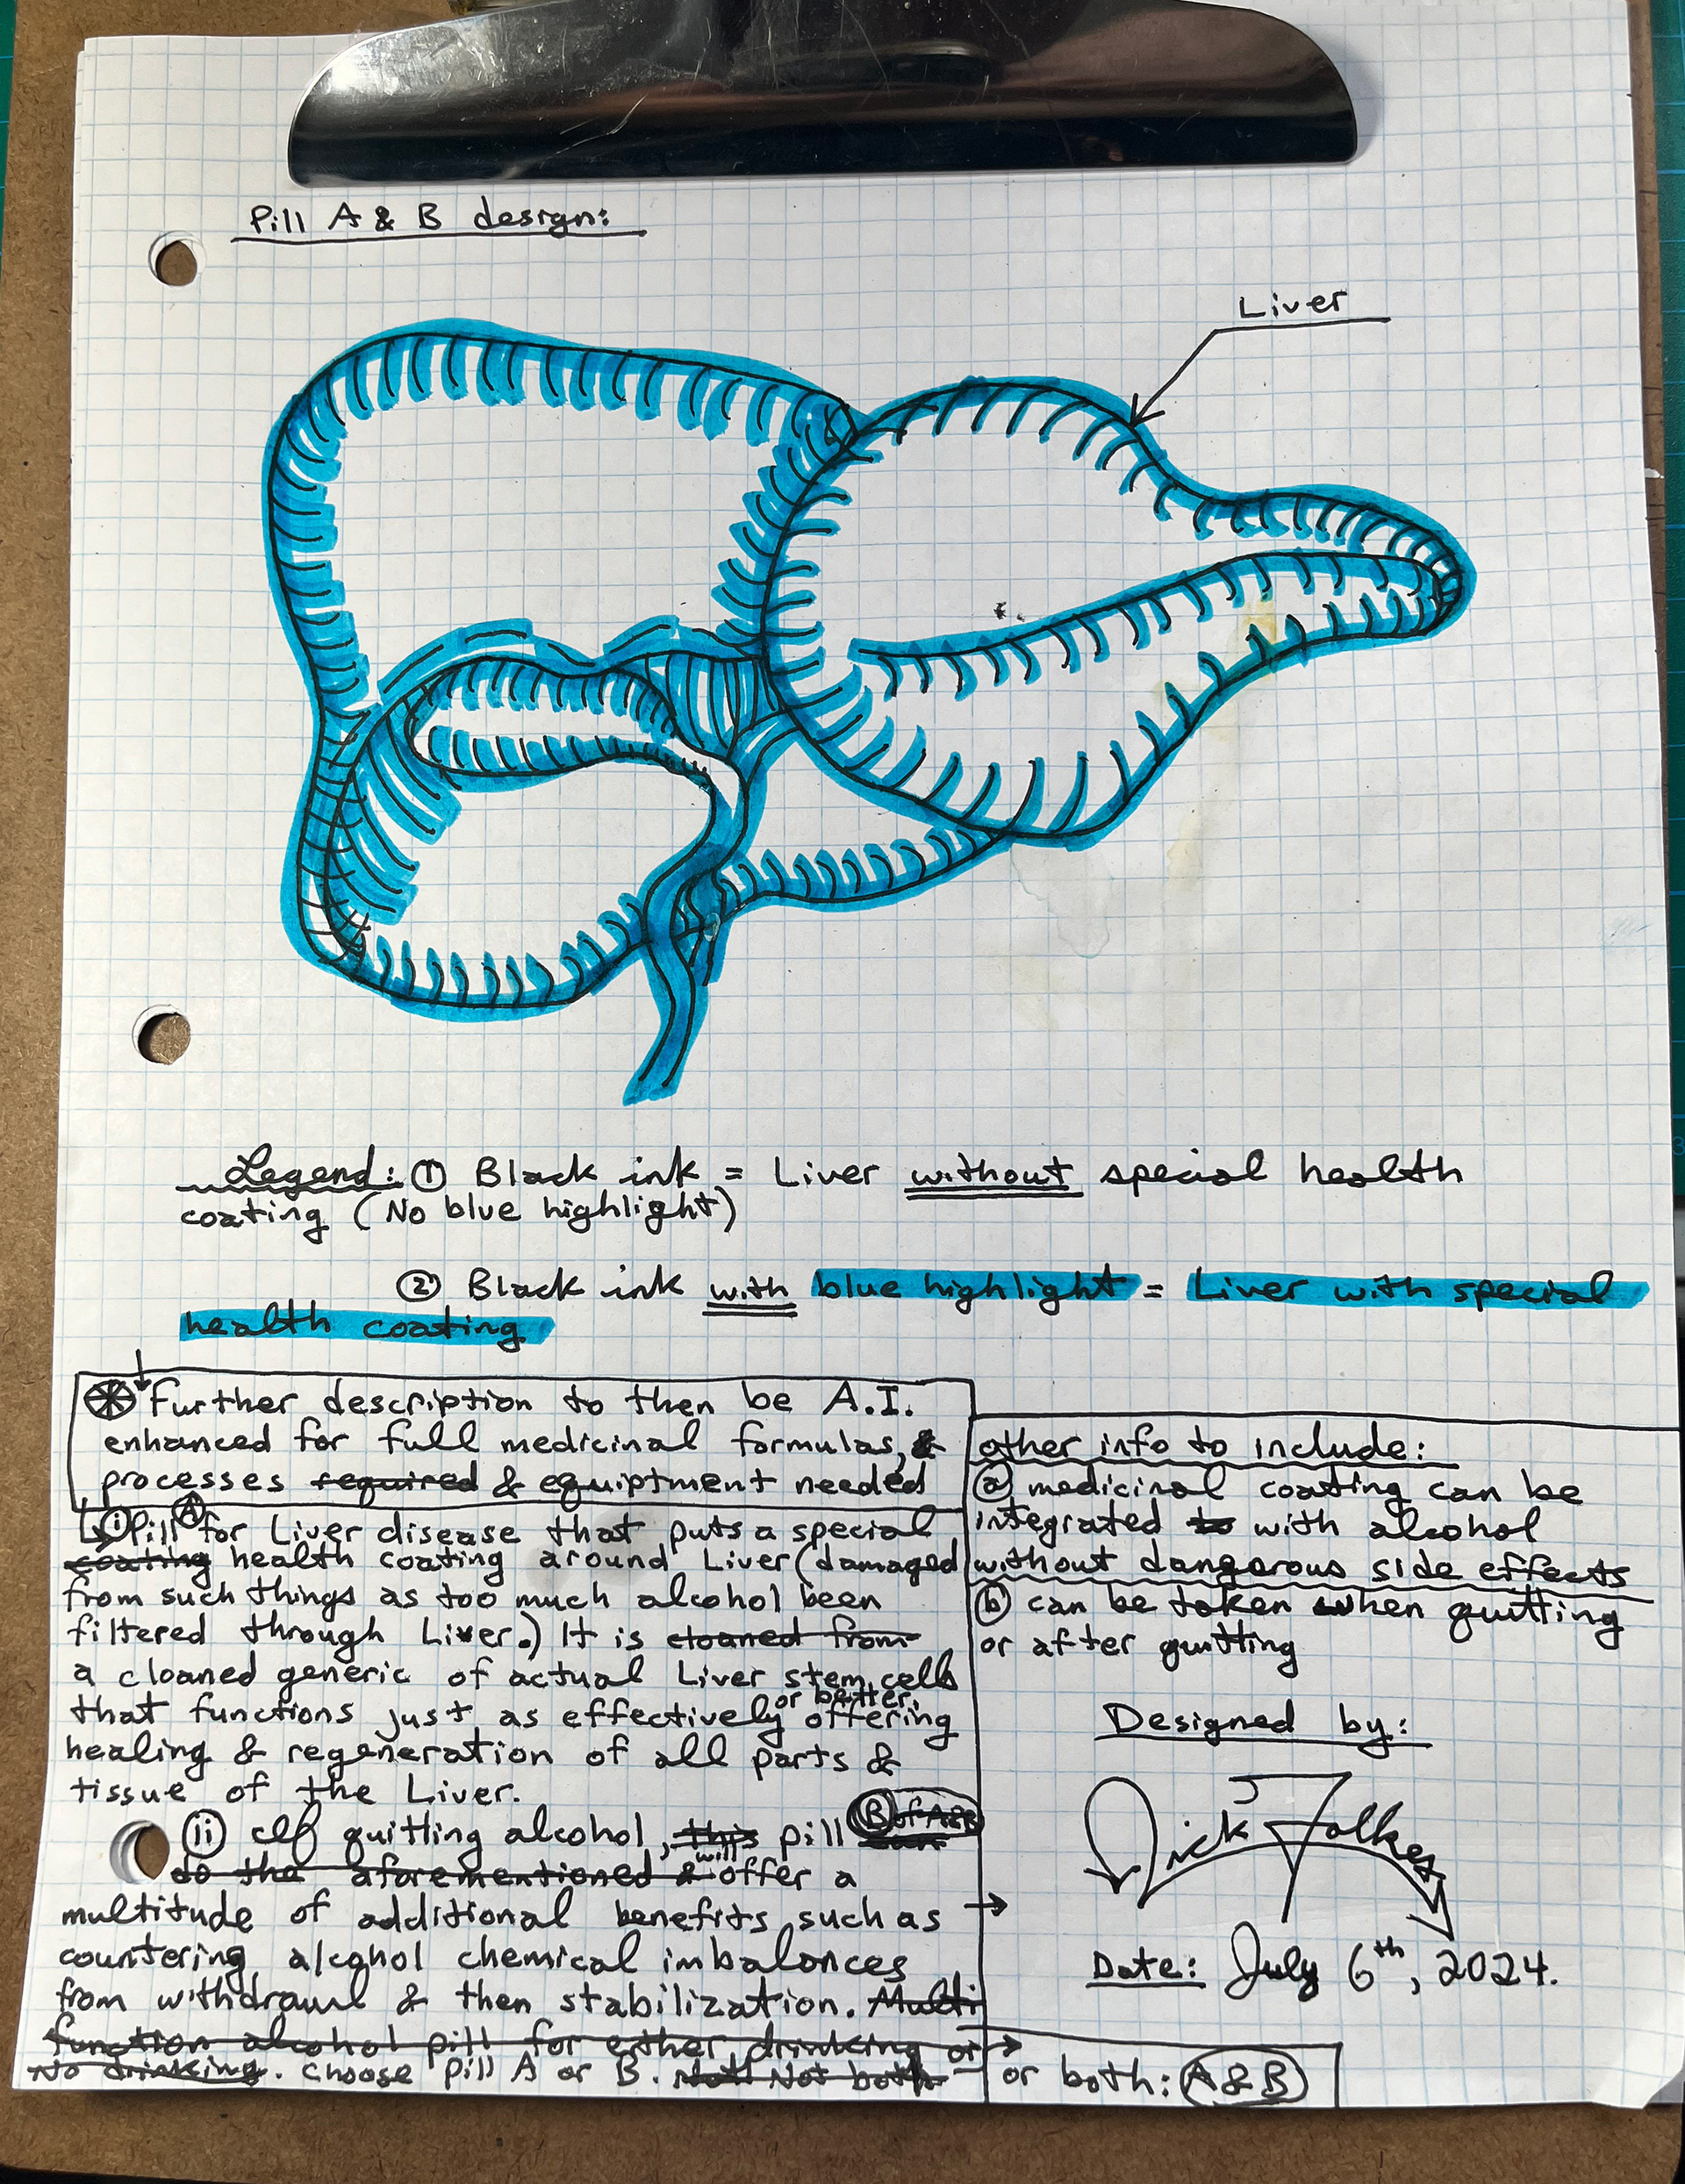 Pill A & B design:
Liver
Legend: ① Black ink = Liver without special health
coating (No blue highlight)
② Black ink with blue highlight = Liver with special
health coating.
Further description to then be A.I.
enhanced for full medicinal formulas, &
processes required & equiptment needed
i Pill A for Liver disease that puts a special
coating health coating around Liver (damaged
from such things as too much alcohol been
filtered through Liver.) It is cloaned from
a cloaned generic of actual Liver stem cells
that functions just as effectively or better, offering
healing & regeneration of all parts &
tissue of the Liver.
ii If quitting alcohol, this pill B of A&B
do the aforementioned & will offer a
multitude of additional benefits such as →
countering alcohol chemical imbalances
from withdrawl & then stabilization. Multi
function alcohol pill for either drinking or →
No drinking. Choose pill A or B. Not both
other info to include:
ⓐ medicinal coating can be
integrated to with alcohol
without dangerous side effects
ⓑ can be taken when quitting
or after quitting
Designed by:
Date: July 6th, 2024.
or both: A & B